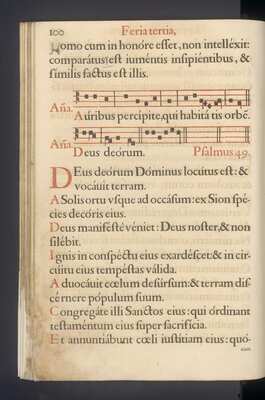 100 Feria tertia,
Homo cum in honóre esset, non intelléxit:
comparátus est iuméntis insipiéntibus, &
similis factus est illis.
Aña. Auribus percipite, qui habitátis orbé.
Aña. Deus deórum. Psalmus 49.
DEus deórum Dóminus locútus est: &
vocáuit terram.
A Solis ortu vsque ad occásum: ex Sion spé-
cies decóris eius.
Deus manifésté véniet: Deus noster, & non
silébit.
Ignis in conspéctu eius exardéscet: & in cir-
cúitu eius tempéstas válida.
Aduocáuit cœlum desúrsum: & terram dis-
cérnere pópulum suum.
Congregáte illi Sanctos eius: qui órdinant
testaméntum eius super sacrifícia.
Et annuntiábunt cœli iustítiam eius: quó-